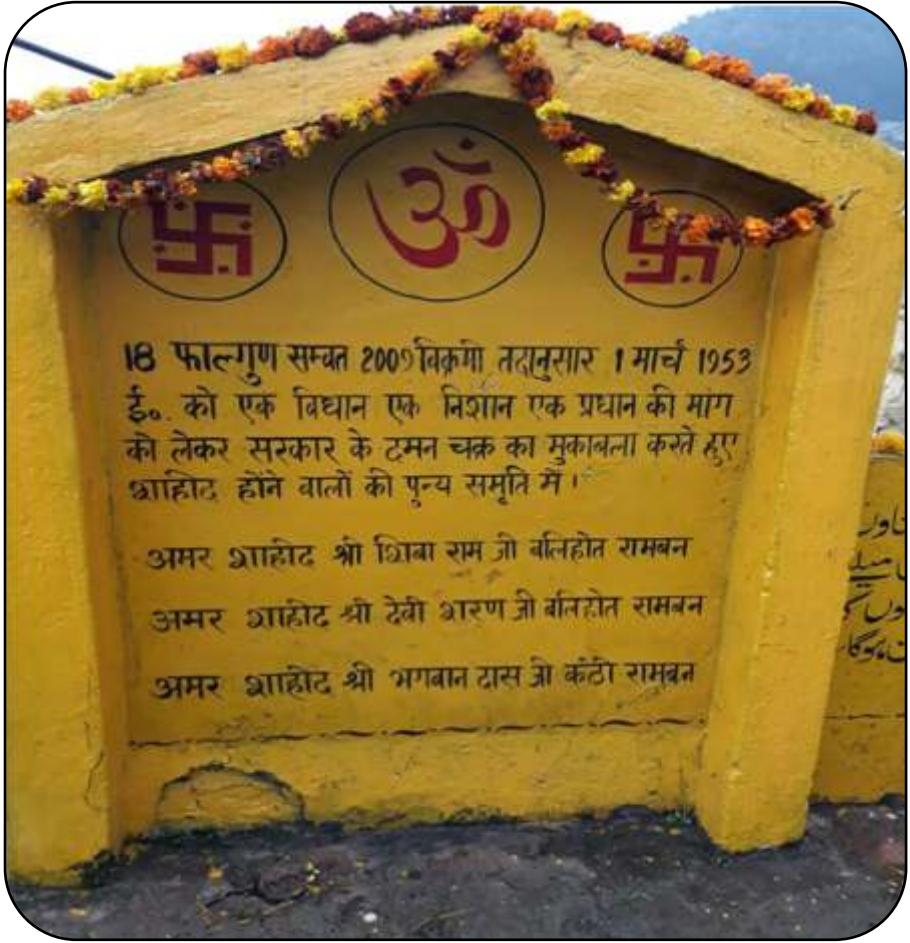 ॐ
18 फाल्गुण सम्वत 2009 विक्रमी तदानुसार 1 मार्च 1953
ई०. को एक विधान एक निशान एक प्रधान की मांग
को लेकर सरकार के टमन चक्र का मुकाबला करते हुए
शाहीट होंने वालों की पुन्य समृति में।
अमर शाहीट श्री शिबा राम जी बलिहोत रामबन
अमर शाहीट श्री देवी शरण जी बलिहोत रामबन
अमर शाहीट श्री भगबान दास जी कंठी रामबन